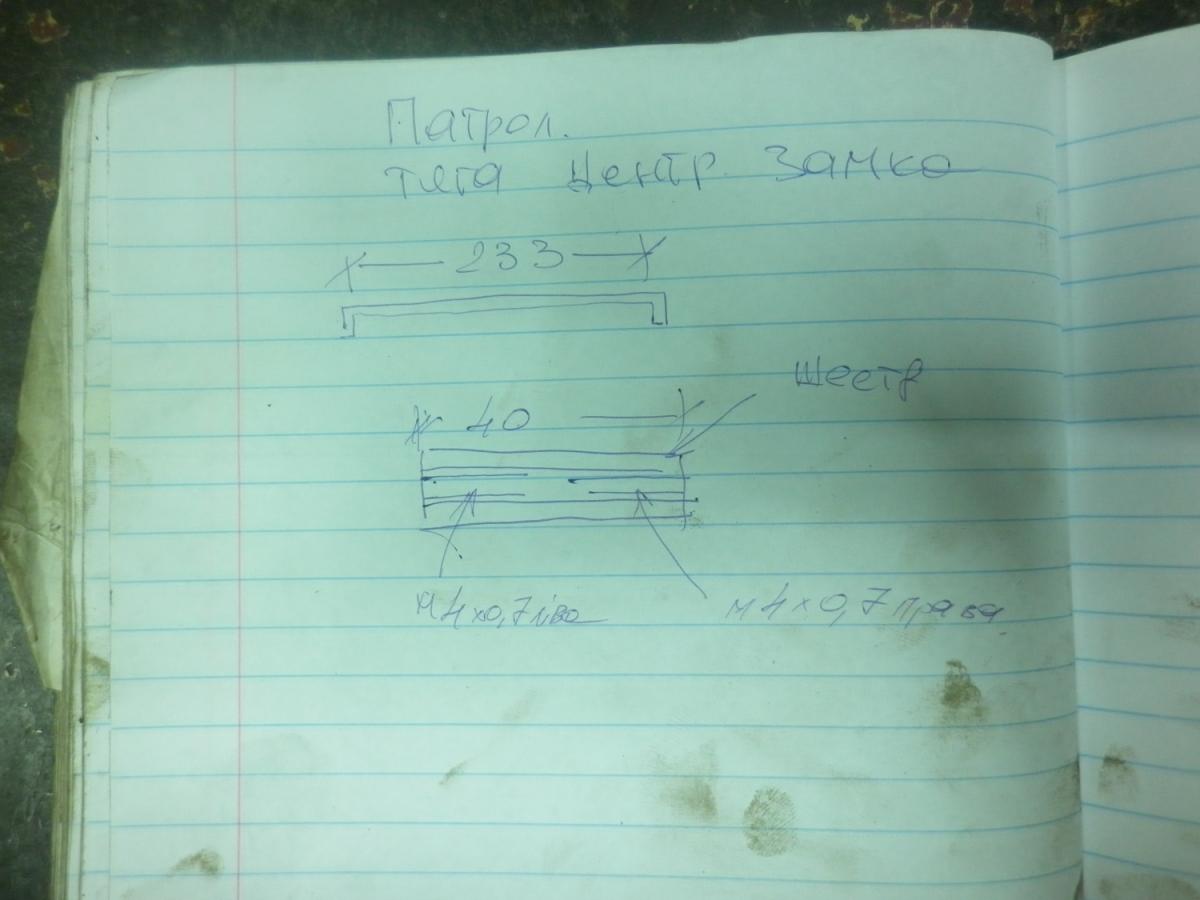 Патрол.
тяга Центр. Замка
233
Шестг
40
М4х0,7 ліва
М4х0,7 права